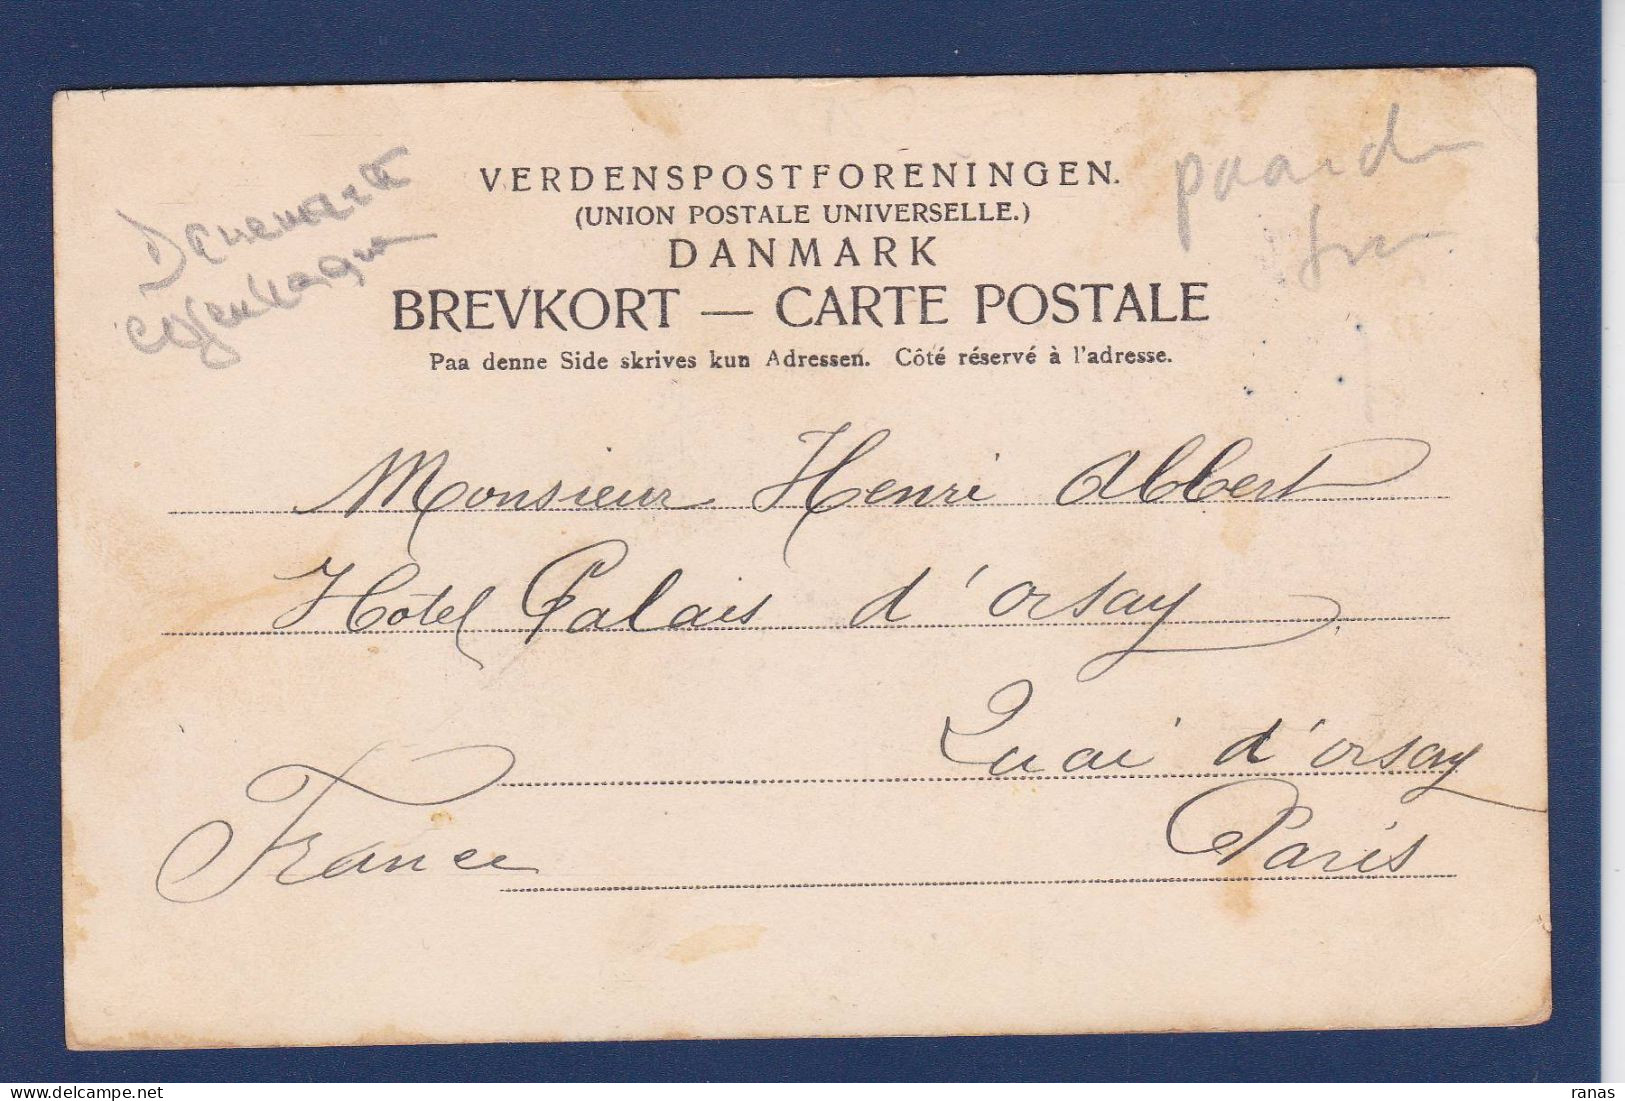 VERDENSPOSTFORENINGEN.
(UNION POSTALE UNIVERSELLE.)
DANMARK
BREVKORT — CARTE POSTALE
Paa denne Side skrives kun Adressen. Côté réservé à l'adresse.
Danemark
paard
Monsieur Henri Abbert
Hôtel Palais d'orsay
Quai d'orsay
Paris
France
ranas